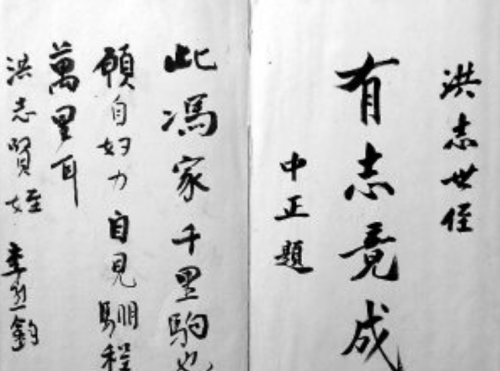 洪志世侄
有志竟成
中正題
此馮家千里駒也
願自奴力自見鵬程
萬里耳
洪志賢姪 李烈鈞